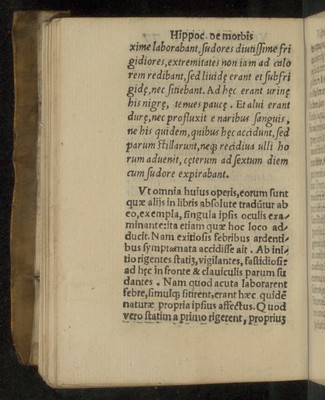 Hippoc. de morbis
xime laborabant, sudores diutissime fri
gidiores, extremitates non iam ad calo
rem redibant, sed liuidę erant et subfri
gidę, nec sitiebant. Ad hęc erant urinę
his nigrę, tenues paucę. Et alui erant
durę, nec profluxit e naribus sanguis,
ne his quidem, quibus hęc accidunt, sed
parum stillarunt, neqʒ recidiua ulli ho
rum aduenit, cęterum ad sextum diem
cum sudore expirabant.
Vt omnia huius operis, eorum sunt
quæ alijs in libris absolute tradūtur ab
eo, exempla, singula ipsis oculis exa/
minante: ita etiam quæ hoc loco ad/
ducit. Nam exitiosis febribus ardenti/
bus symptomata accidisse ait. Ab ini/
tio rigentes statiʒ, vigilantes, fastidiosi:
ad hęc in fronte & clauiculis parum su
dantes. Nam quod acuta laborarent
febre, simulqʒ sitirent, erant hæc quidē
naturæ propria ipsius affectus. Quod
vero statim a primo rigerent, propriuʒ